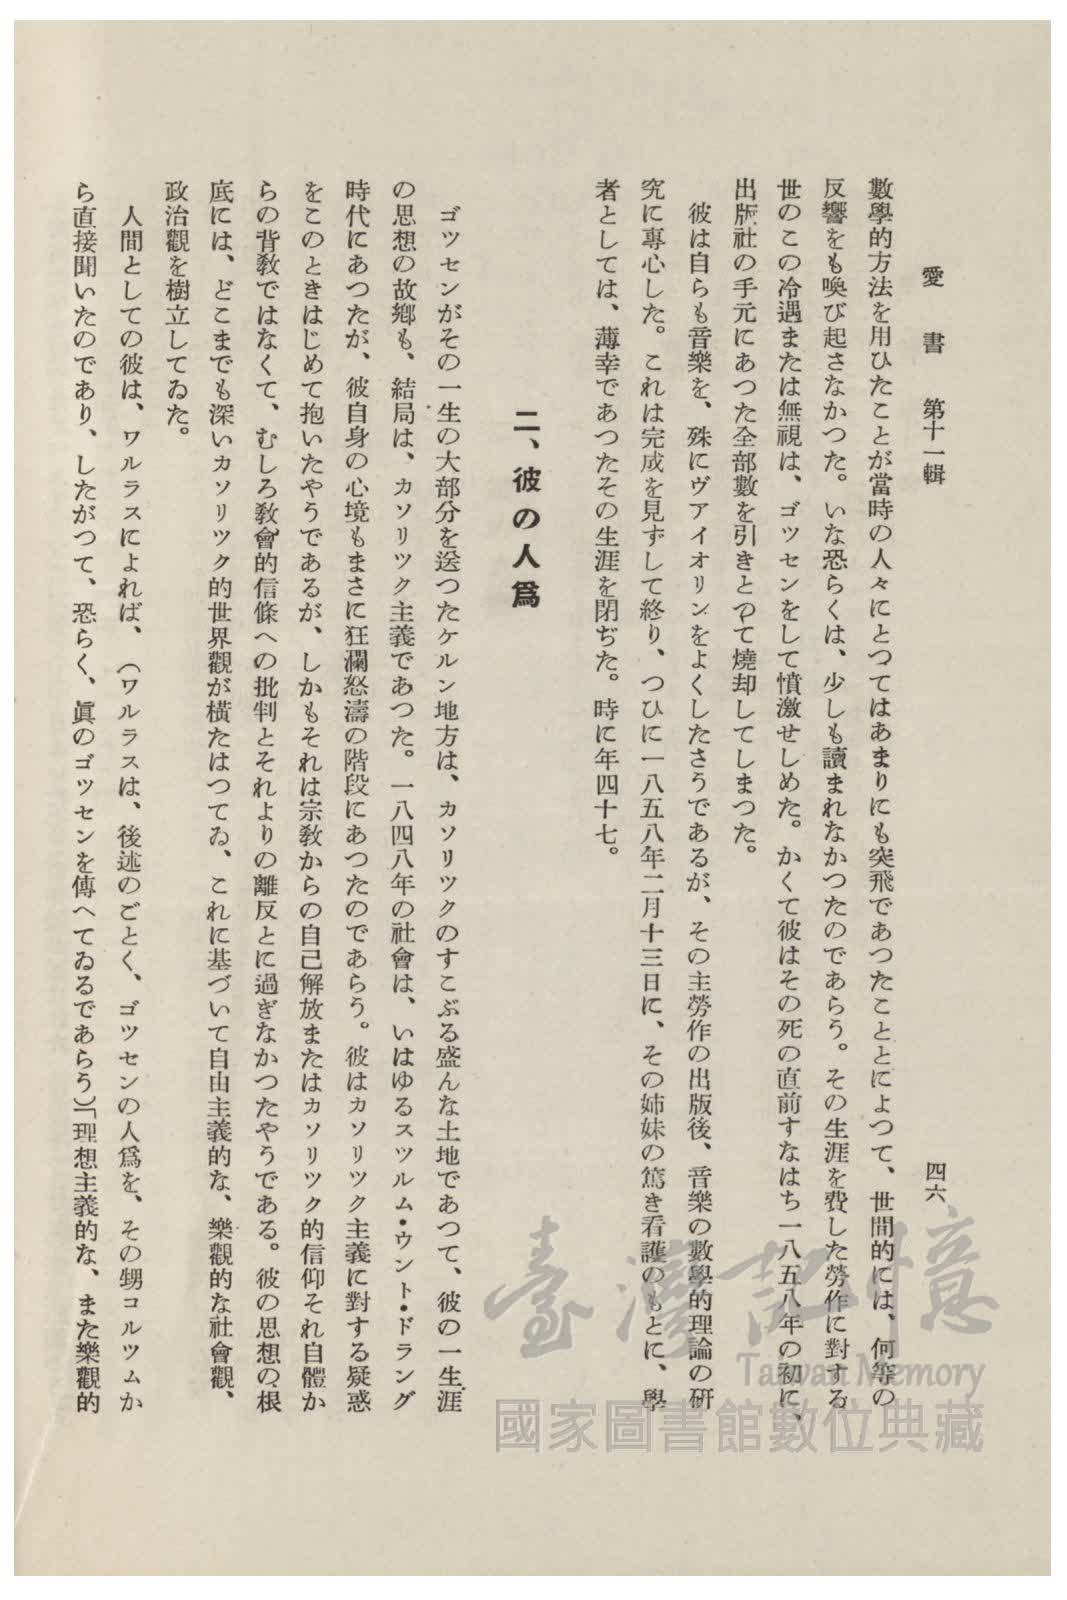 愛書 第十一輯
四六
數學的方法を用ひたことが當時の人々にとつてはあまりにも突飛であつたこととによつて、世間的には、何等の
反響をも喚び起さなかつた。いな恐らくは、少しも讀まれなかつたのであらう。その生涯を費した勞作に對する
世のこの冷遇または無視は、ゴツセンをして憤激せしめた。かくて彼はその死の直前すなはち一八五八年の初に、
出版社の手元にあつた全部數を引きとつて燒却してしまつた。
彼は自らも音樂を、殊にヴアイオリンをよくしたさうであるが、その主勞作の出版後、音樂の數學的理論の硏
究に專心した。これは完成を見ずして終り、つひに一八五八年二月十三日に、その姉妹の篤き看護のもとに、學
者としては、薄幸であつたその生涯を閉ぢた。時に年四十七。
二、彼の人爲
ゴツセンがその一生の大部分を送つたケルン地方は、カソリツクのすこぶる盛んな土地であつて、彼の一生涯
の思想の故鄕も、結局は、カソリツク主義であつた。一八四八年の社會は、いはゆるスツルム・ウント・ドラング
時代にあつたが、彼自身の心境もまさに狂瀾怒濤の階段にあつたのであらう。彼はカソリツク主義に對する疑惑
をこのときはじめて抱いたやうであるが、しかもそれは宗敎からの自己解放またはカソリツク的信仰それ自體か
らの背敎ではなくて、むしろ敎會的信條への批判とそれよりの離反とに過ぎなかつたやうである。彼の思想の根
底には、どこまでも深いカソリツク的世界觀が橫たはつてゐ、これに基づいて自由主義的な、樂觀的な社會觀、
政治觀を樹立してゐた。
人間としての彼は、ワルラスによれば、（ワルラスは、後述のごとく、ゴツセンの人爲を、その甥コルツムか
ら直接聞いたのであり、したがつて、恐らく、眞のゴツセンを傳へてゐるであらう）「理想主義的な、また樂觀的
臺灣記憶
Taiwan Memory
國家圖書館數位典藏